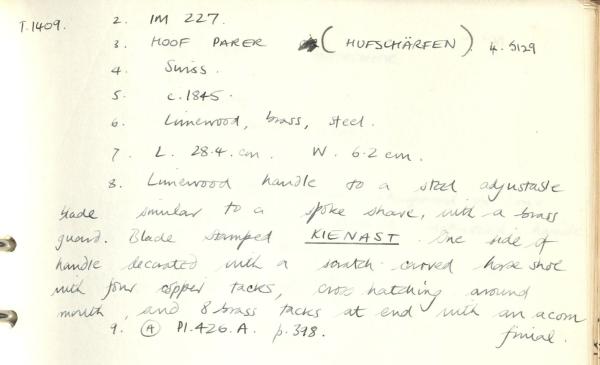 T.1409. 2. IM 227.
3. HOOF PARER (HUFSCHÄRFEN) 4. S129
4. Swiss.
5. c.1845.
6. Limewood, brass, steel.
7. L. 28.4. cm. W. 6.2 cm.
8. Limewood handle to a steel adjustable
blade similar to a spoke shave, with a brass
guard. Blade stamped KIENAST. One side of
handle decorated with a scratch-carved horse shoe
with four copper tacks, cross hatching around
mouth, and 8 brass tacks at end with an acorn
finial.
9. (A) Pl.426.A. p.398.